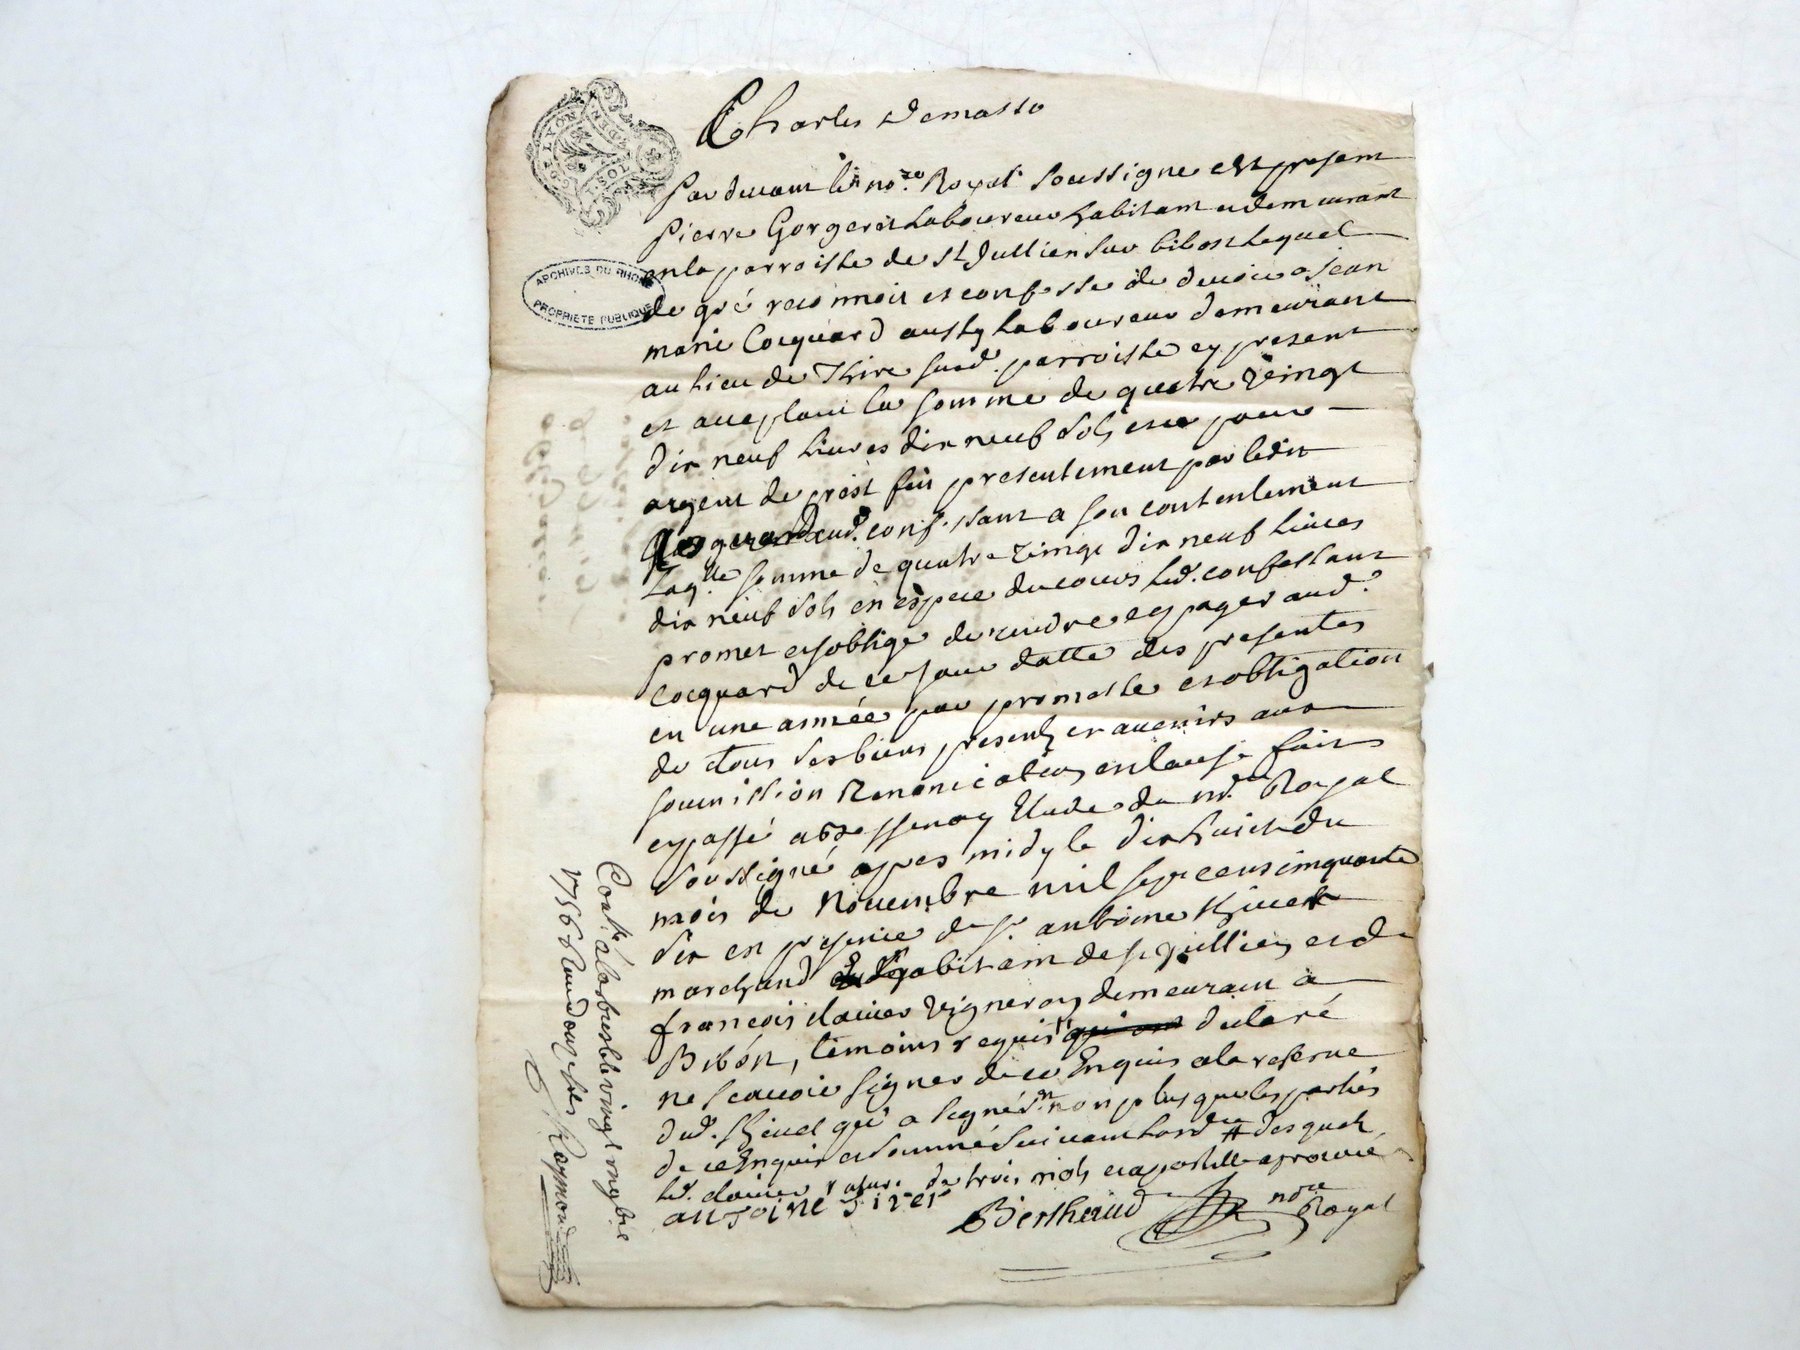 Charles Demasso
Par devant le no.re Royal soussigne est present
Pierre Gorgeret Laboureur habitant et demeurant
en la parroisse de st Jullien sur bibost Lequel
de gré reconnoit et confesse de devoir a Jean
marie Cocquard aussy Laboureur demeurant
au lieu de Thire susd. parroisse cy present
et acceptant la somme de quatre vingt
dix neuf livres dix neuf sols et ce pour
argent de prest fait presentement par ledit
aud. confessant a son contentement
Laq.lle somme de quatre vingt dix neuf livres
dix neuf sols en espece du cours Led. confessant
promet et soblige de rendre et payer aud.
Cocquard de ce jour datte des presentes
en une année par promesse et obligation
de tous ses biens presents et avenirs aux
soumission Renonciation et clause fait
et passé a Bessenay Etude du no.re Royal
soussigné apres midy le dix huict du
mois de Novembre mil sept cens cinquante
six en presence de sr. antoine thivel
marchand habitant de st jullien et de
francois vigneron demeurant a
Bibôst, temoins requis qui ont declaré
ne scavoir signer de ce Enquis a la reserve
dud. thivel qui a signé non plus que les parties
de ce Enquis et sommé suivant Lord.ce # desquels
led. rature de trois mots et apostille aprouvé
antoine Tivel
Berthaud no.re Royal
Conté. a Lasbresle le vingt neuf 9bre
1756 R. Raymond
G. DE LYON
ARCHIVES DU RHONE
PROPRIETE PUBLIQUE